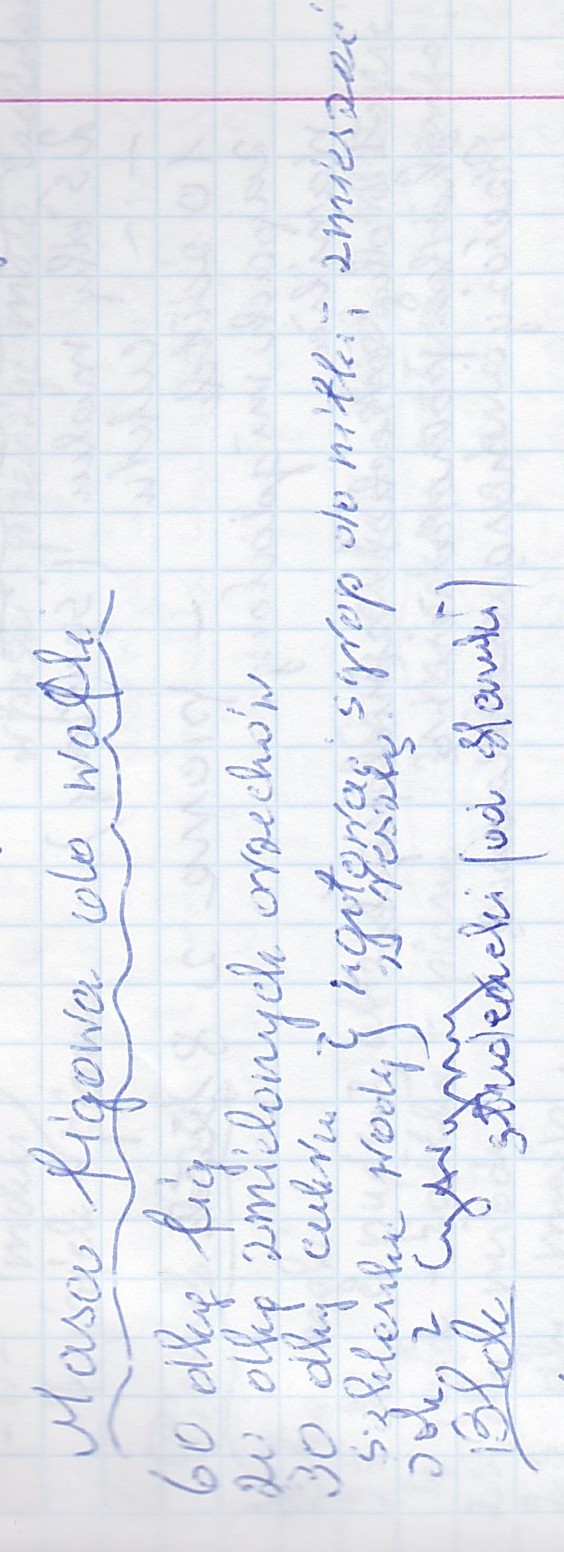 Masa figowa do wafli
60 dkg fig
20 dkg zmielonych orzechów
30 dkg cukru
szklanka wody } ugotować syrop do nitki, zmieszać
z resztą
sok z cytryny
Blok studencki (od Sławki)